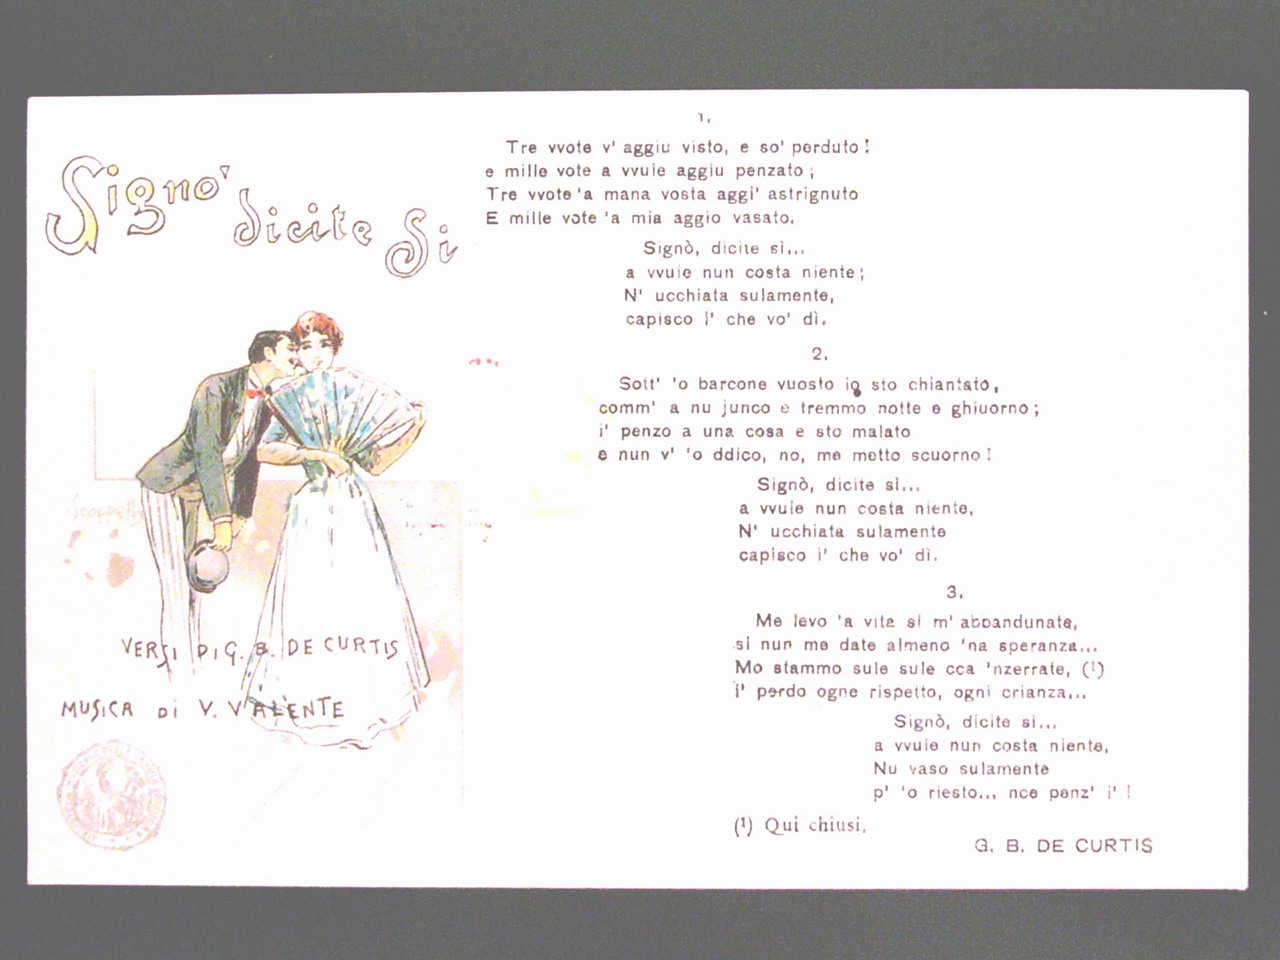 Signo' dicite Si
Scoppetta
VERSI DI G. B. DE CURTIS
MUSICA DI V. VALENTE
1.
Tre vvote v' aggiu visto, e so' perduto!
e mille vote a vvuie aggiu penzato;
Tre vvote 'a mana vosta aggi' astrignuto
E mille vote 'a mia aggio vasato.
Signò, dicite sì...
a vvuie nun costa niente;
N' ucchiata sulamente,
capisco i' che vo' dì.
2.
Sott' 'o barcone vuosto io sto chiantato,
comm' a nu junco e tremmo notte e ghiuorno;
i' penzo a una cosa e sto malato
e nun v' 'o ddico, no, me metto scuorno!
Signò, dicite sì...
a vvuie nun costa niente,
N' ucchiata sulamente
capisco i' che vo' dì.
3.
Me levo 'a vita si m' abbandunate,
si nun me date almeno 'na speranza...
Mo stammo sule sule cca 'nzerrate, (¹)
i' perdo ogne rispetto, ogni crianza...
Signò, dicite sì...
a vvuie nun costa niente,
Nu vaso sulamente
p' 'o riesto... nce penz' i'!
(¹) Qui chiusi,
G. B. DE CURTIS